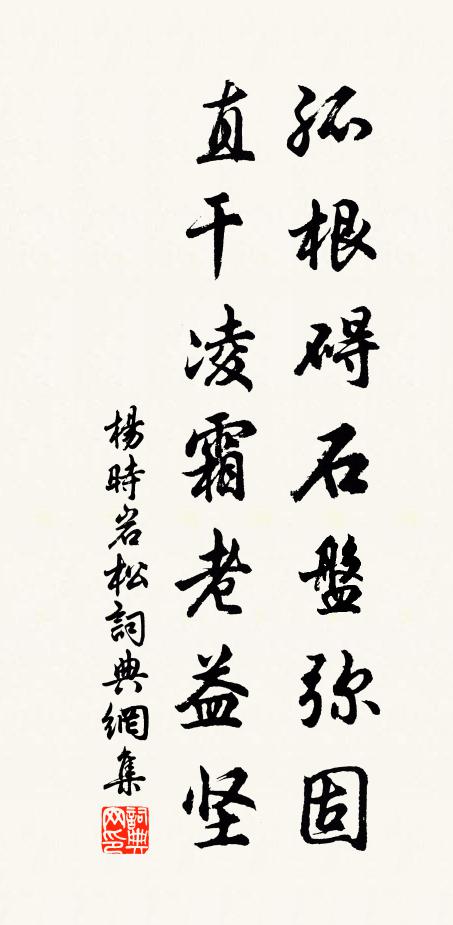 孤根碍石盤弥固
直干凌霜老益坚
楊時岩松詞典網集
詞典网印